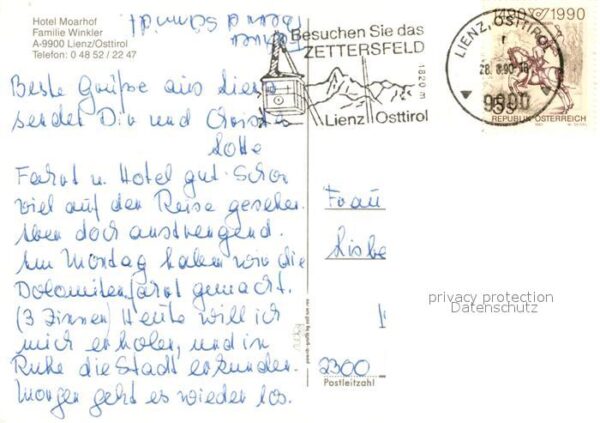 Hotel Moarhof
Familie Winkler
A-9900 Lienz/Osttirol
Telefon: 0 48 52 / 22 47
Besuchen Sie das
ZETTERSFELD
1820 m
Lienz Osttirol
LIENZ, OSTTIROL
28. 8. 90
9900
1490 1990
REPUBLIK ÖSTERREICH
Beste Grüße aus Lienz
sendet Dir und
Lotte
Fahrt u. Hotel gut. Schon
viel auf der Reise gesehen.
Aber doch anstrengend.
Am Montag haben wir die
Dolomitenfahrt gemacht.
(3 Zinnen) Heute will ich
mich erholen, und in
Ruhe die Stadt erkunden.
Morgen geht es wieder los.
Frau
Lisbe
2300
Postleitzahl
privacy protection
Datenschutz